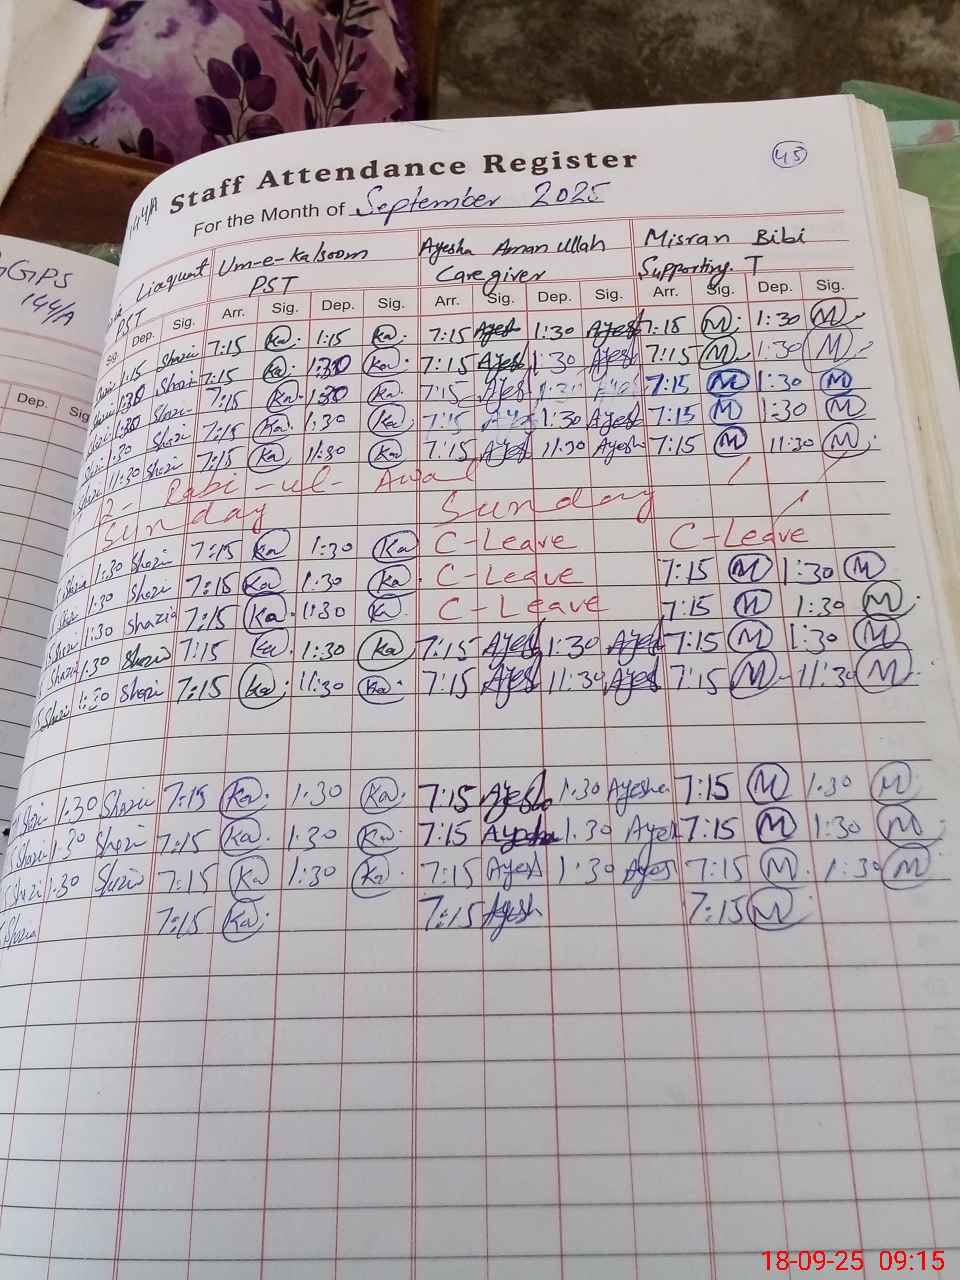 45
144/A Staff Attendance Register
For the Month of September 2025
GGPS
144/A
Liaquat Um-e-kalsoom Ayesha Aman ullah Misran Bibi
PST PST Caregiver Supporting. T
Sig. Dep. Sig. Arr. Sig. Dep. Sig. Arr. Sig. Dep. Sig. Arr. Sig. Dep. Sig.
Dep. Sig
1:15 Shazi 7:15 Ka 1:15 Ka 7:15 Ayesh 1:30 Ayesh 7:15 M 1:30 M
1:30 Shazi 7:15 Ka 1:30 Ka 7:15 Ayesh 1:30 Ayesh 7:15 M 1:30 M
1:30 Shazi 7:15 Ka 1:30 Ka 7:15 Ayesh 1:30 Ayesh 7:15 M 1:30 M
1:30 Shazi 7:15 Ka 1:30 Ka 7:15 Ayesh 1:30 Ayesh 7:15 M 1:30 M
Shazi 11:30 Shazi 7:15 Ka 11:30 Ka 7:15 Ayesh 11:30 Ayesh 7:15 M 11:30 M
12- Rabi-ul- Awal
Sunday Sunday
Shazi 1:30 Shazi 7:15 Ka 1:30 Ka C-Leave C-Leave
Shazi 1:30 Shazi 7:15 Ka 1:30 Ka C-Leave 7:15 M 1:30 M
Shazi 1:30 Shazia 7:15 Ka 1:30 K C-Leave 7:15 M 1:30 M
Shazi 1:30 Shazia 7:15 Ka 1:30 Ka 7:15 Ayesh 1:30 Ayesh 7:15 M 1:30 M
Shazi 1:30 Shazi 7:15 Ka 11:30 Ka 7:15 Ayesh 11:30 Ayesh 7:15 M 11:30 M
Shazi 1:30 Shazi 7:15 Ka 1:30 Ka 7:15 Ayesha 1:30 Ayesha 7:15 M 1:30 M
Shazi 1:30 Shazi 7:15 Ka 1:30 Ka 7:15 Ayesha 1:30 Ayesh 7:15 M 1:30 M
Shazi 1:30 Shazi 7:15 Ka 1:30 Ka 7:15 Ayesh 1:30 Ayesh 7:15 M 1:30 M
Shazia 7:15 Ka 7:15 Ayesh 7:15 M
18-09-25 09:15